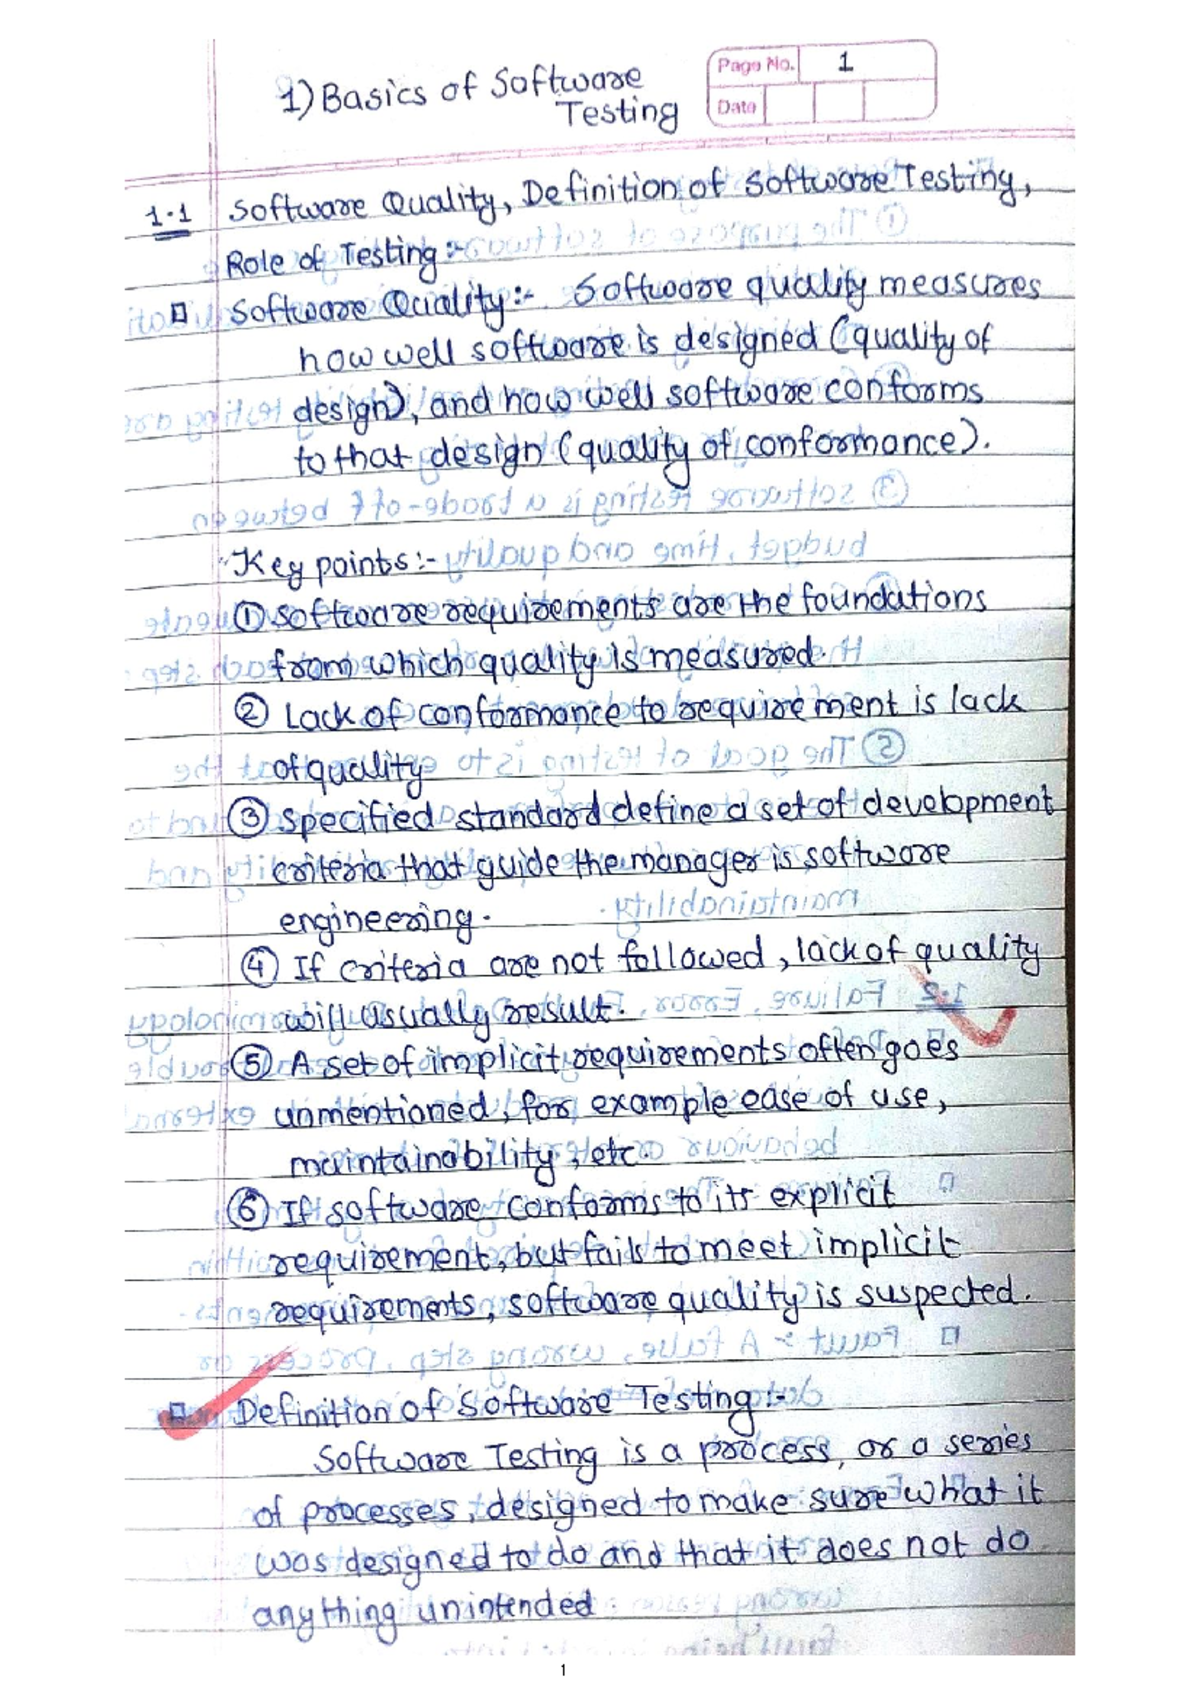 Page No. 1
Date
1) Basics of Software
Testing
1.1 Software Quality, Definition of Software Testing,
Role of Testing :-
Software Quality:- Software quality measures
how well software is designed (quality of
design), and how well software conforms
to that design (quality of conformance).
Key points:-
① Software requirements are the foundations
from which quality is measured.
② Lack of conformance to requirement is lack
of quality
③ Specified standard define a set of development
criteria that guide the manager is software
engineering.
④ If criteria are not followed, lack of quality
will usually result.
⑤ A set of implicit requirements often goes
unmentioned, for example ease of use,
maintainability, etc
⑥ If software conforms to its explicit
requirement, but fails to meet implicit
requirements, software quality is suspected.
Definition of Software Testing:-
Software Testing is a process, or a series
of processes, designed to make sure what it
was designed to do and that it does not do
anything unintended
1